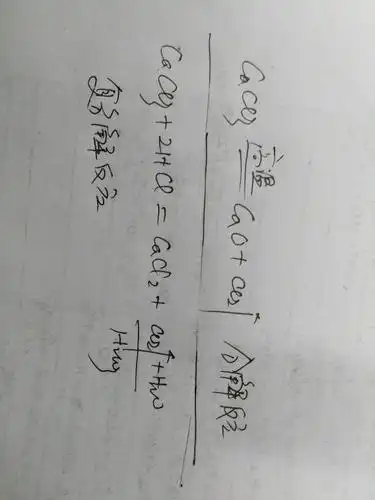 CaCO₃ 高温 CaO + CO₂↑ 分解反应
CaCO₃ + 2HCl = CaCl₂ + CO₂↑ + H₂O
H₂CO₃
复分解反应